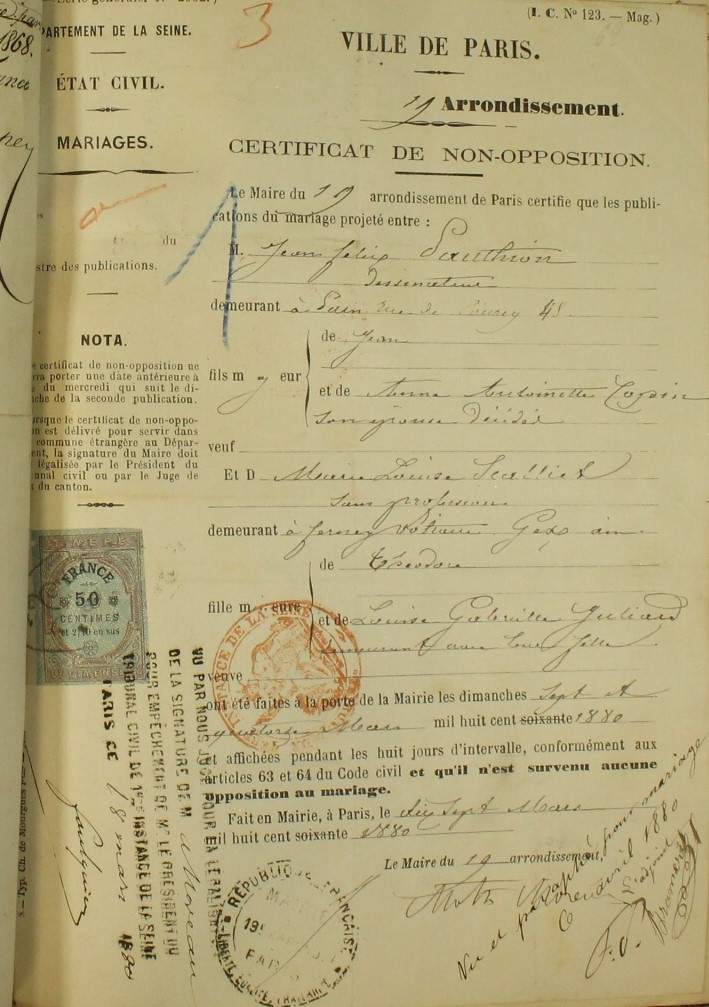 (I. C. Nº 123. — Mag.)
3
1868.
PARTEMENT DE LA SEINE.
ÉTAT CIVIL.
MARIAGES.
du
stre des publications.
NOTA.
certificat de non-opposition ne
porter une date antérieure à
du mercredi qui suit le di-
che de la seconde publication.
rsque le certificat de non-oppo-
n est délivré pour servir dans
commune étrangère au Dépar-
ent, la signature du Maire doit
légalisée par le Président du
unal civil ou par le Juge de
du canton.
FRANCE
50
CENTIMES
et 2/10 en sus
S. — Typ. Ch. de Mourgues
VILLE DE PARIS.
19 Arrondissement.
CERTIFICAT DE NON-OPPOSITION.
Le Maire du 19 arrondissement de Paris certifie que les publi-
cations du mariage projeté entre :
M. Jean felix
Dessinateur
demeurant à Paris rue de 48
de Jean
fils m eur
et de Anne Antoinette
son épouse décédée
veuf
Et D Marie Louise
sans profession
demeurant à ferney Voltaire Gex ain
de théodore
fille m eure
et de Louise Gabrielle
demeurant avec leur fille
veuve
ont été faites à la porte de la Mairie les dimanches Sept &
quatorze Mars mil huit cent soixante 1880
et affichées pendant les huit jours d'intervalle, conformément aux
articles 63 et 64 du Code civil et qu'il n'est survenu aucune
opposition au mariage.
Fait en Mairie, à Paris, le dix Sept Mars
mil huit cent soixante 1880
Le Maire du 19 arrondissement,
VU PAR NOUS JUGE POUR LA LÉGALITÉ
DE LA SIGNATURE DE M Moreau
POUR EMPÊCHEMENT DE Mr LE PRÉSIDENT DU
TRIBUNAL CIVIL DE 1re INSTANCE DE LA SEINE
PARIS CE 18 mars 1880
INSTANCE DE LA SEINE
RÉPUBLIQUE FRANÇAISE
LIBERTÉ, ÉGALITÉ, FRATERNITÉ
Vu et paraphé pour mariage
avril 1880
L'adjoint